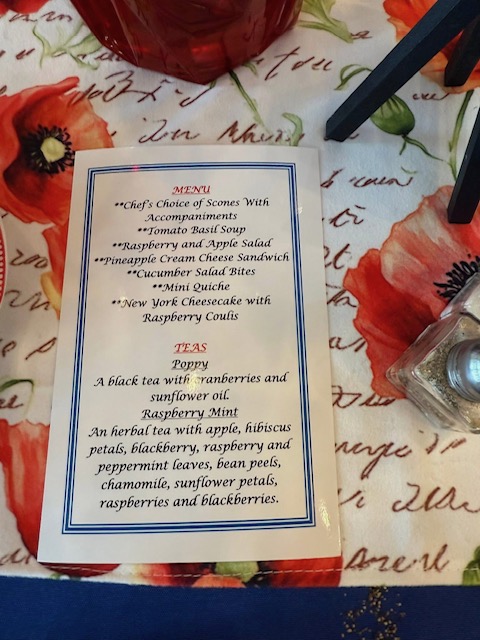 MENU
**Chef's Choice of Scones With
Accompaniments
**Tomato Basil Soup
**Raspberry and Apple Salad
**Pineapple Cream Cheese Sandwich
**Cucumber Salad Bites
**Mini Quiche
**New York Cheesecake with
Raspberry Coulis
TEAS
Poppy
A black tea with cranberries and
sunflower oil.
Raspberry Mint
An herbal tea with apple, hibiscus
petals, blackberry, raspberry and
peppermint leaves, bean peels,
chamomile, sunflower petals,
raspberries and blackberries.